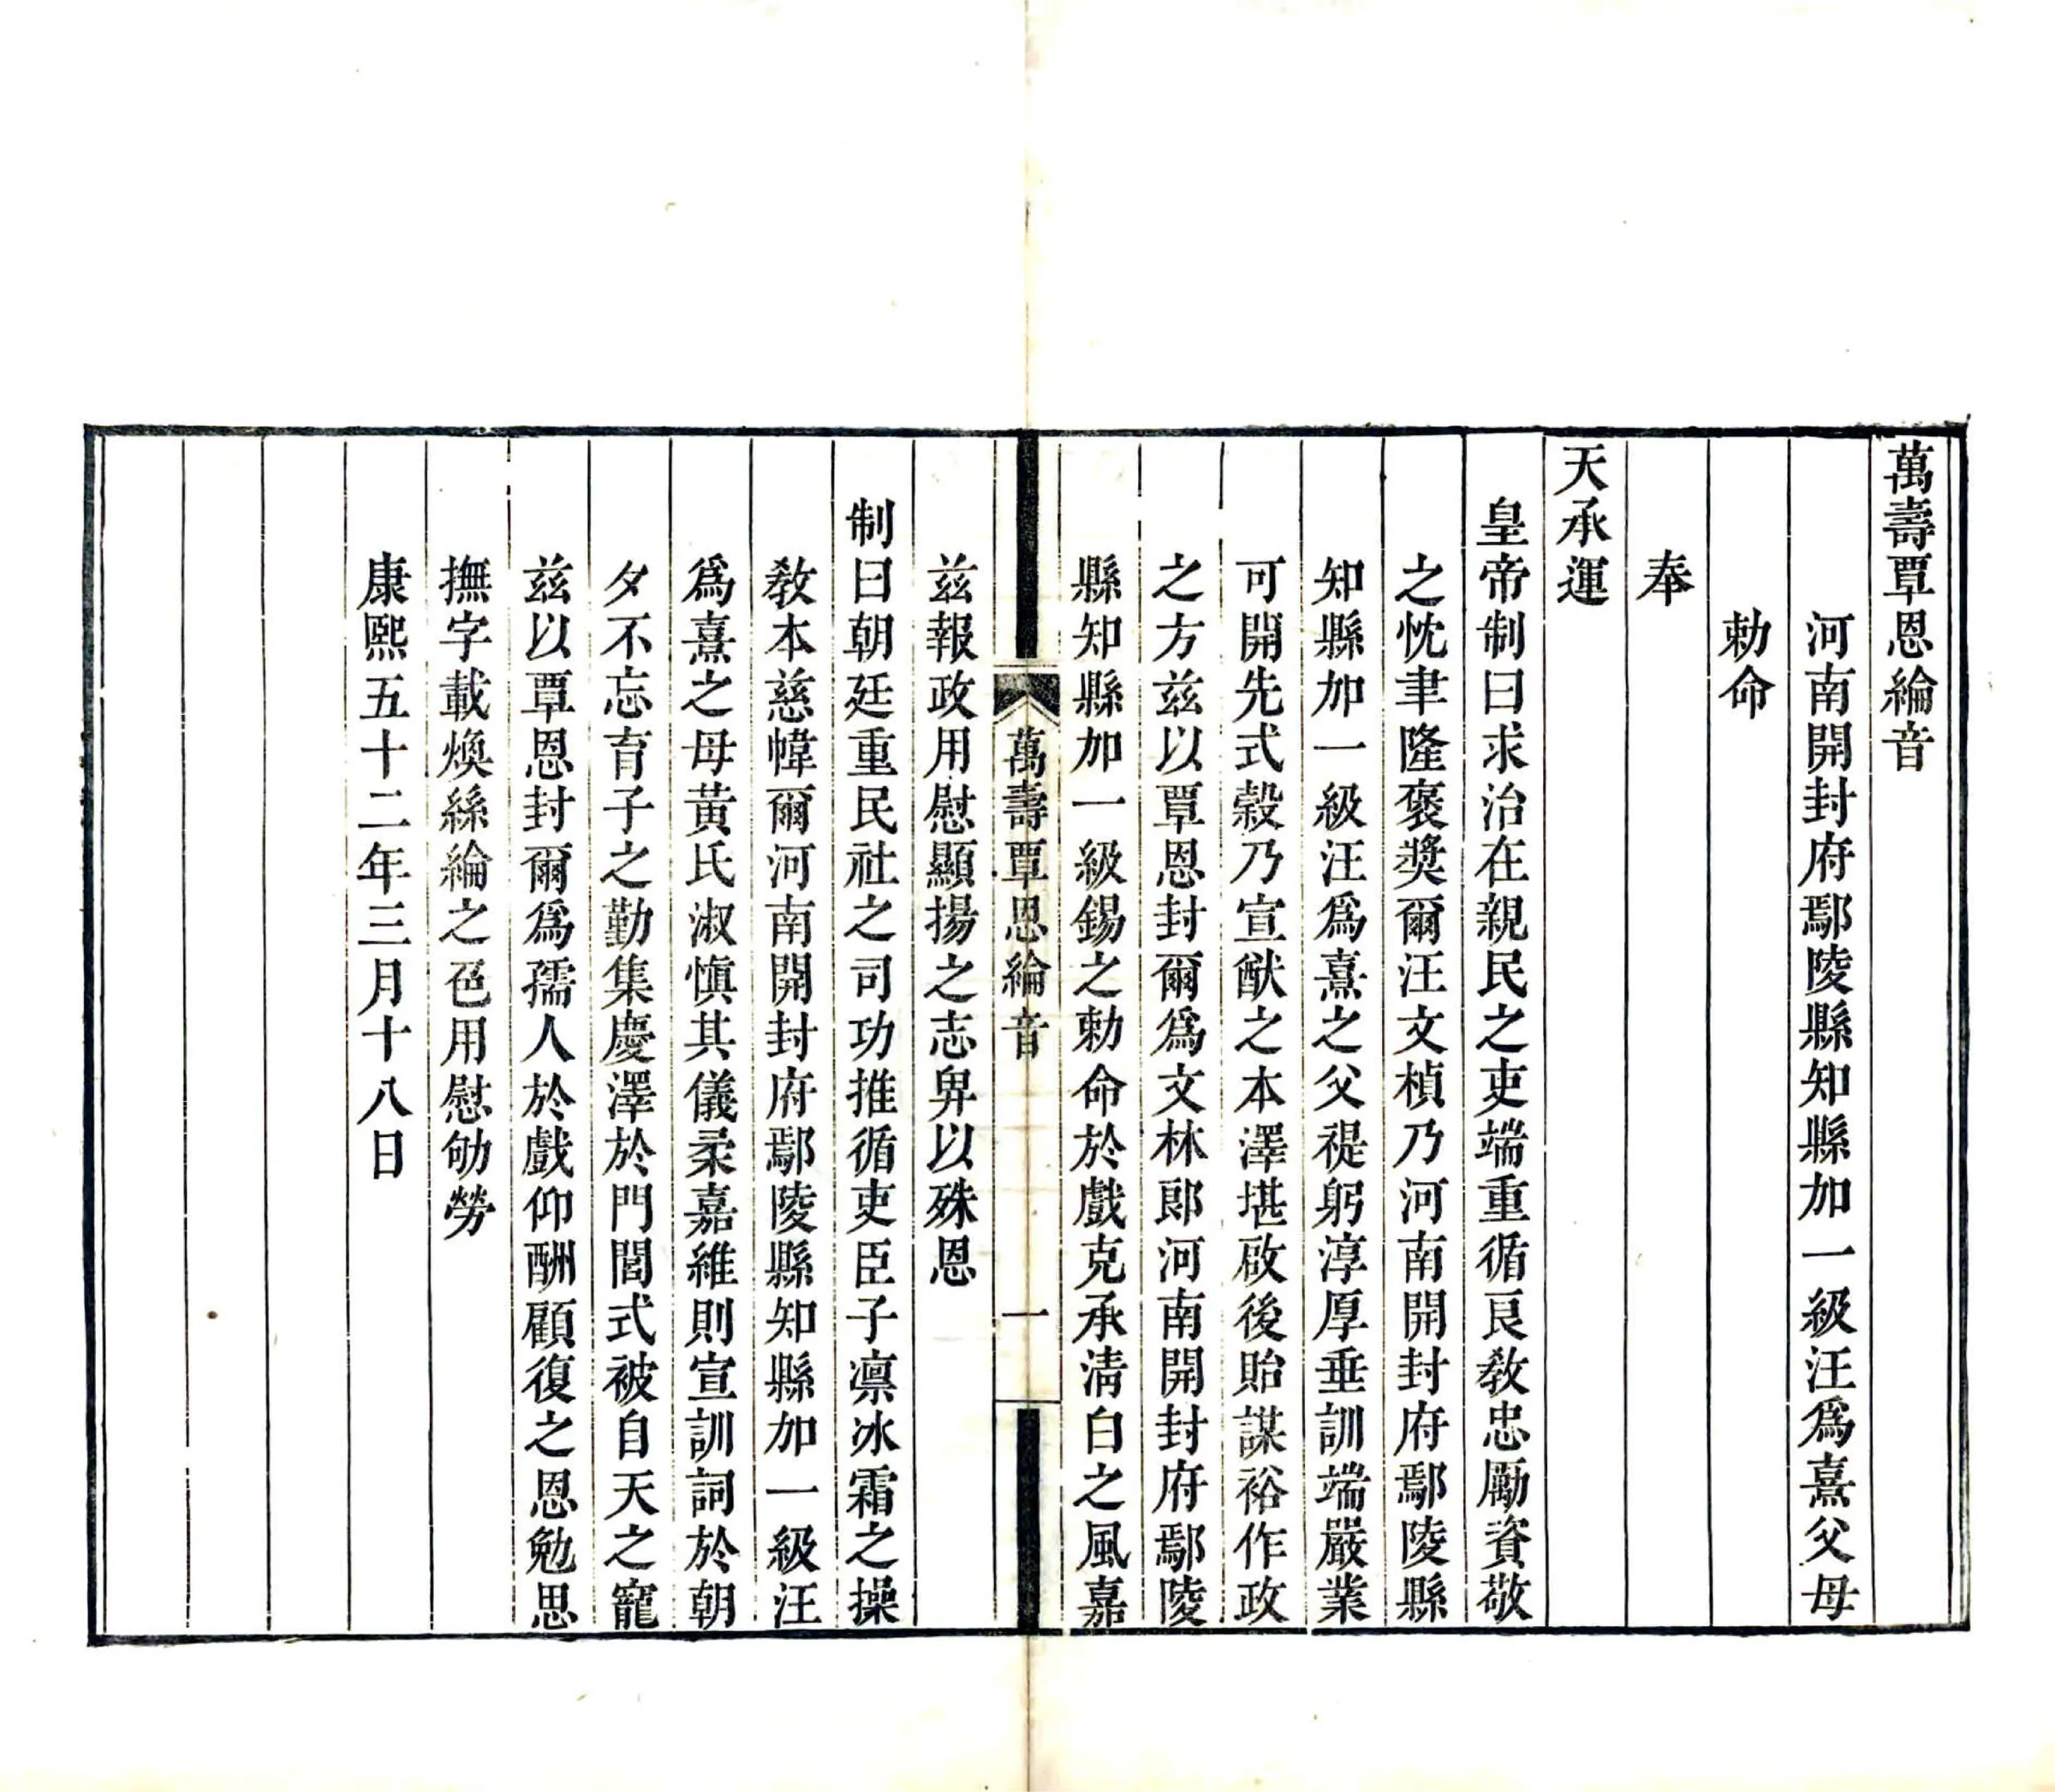 萬壽覃恩綸音
河南開封府鄢陵縣知縣加一級汪爲熹父母
勅命
奉
天承運
皇帝制曰求治在親民之吏端重循良敎忠勵資敬
之忱聿隆褒奬爾汪文楨乃河南開封府鄢陵縣
知縣加一級汪爲熹之父禔躬淳厚垂訓端嚴業
可開先式穀乃宣猷之本澤堪啟後貽謀裕作政
之方兹以覃恩封爾爲文林郎河南開封府鄢陵
縣知縣加一級錫之勅命於戲克承清白之風嘉
萬壽覃恩綸音
一
兹報政用慰顯揚之志畀以殊恩
制曰朝廷重民社之司功推循吏臣子凛冰霜之操
敎本慈幃爾河南開封府鄢陵縣知縣加一級汪
爲熹之母黃氏淑愼其儀柔嘉維則宣訓詞於朝
夕不忘育子之勤集慶澤於門閭式被自天之寵
兹以覃恩封爾爲孺人於戲仰酬顧復之恩勉思
撫字載煥絲綸之色用慰劬勞
康熙五十二年三月十八日